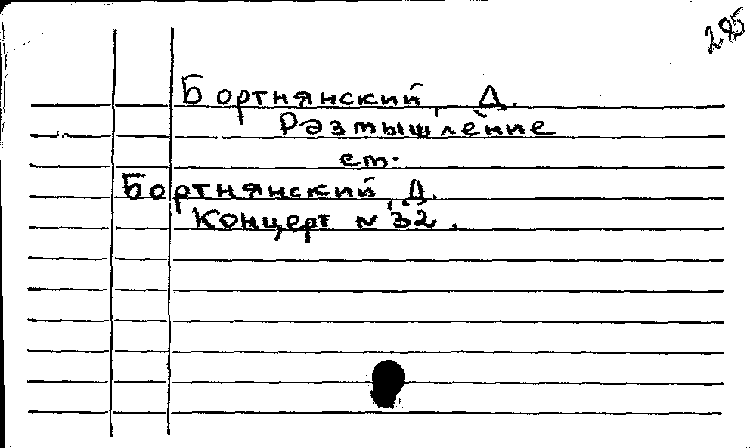 285
Бортнянский, Д.
Размышление
см.
Бортнянский, Д.
Концерт № 32.